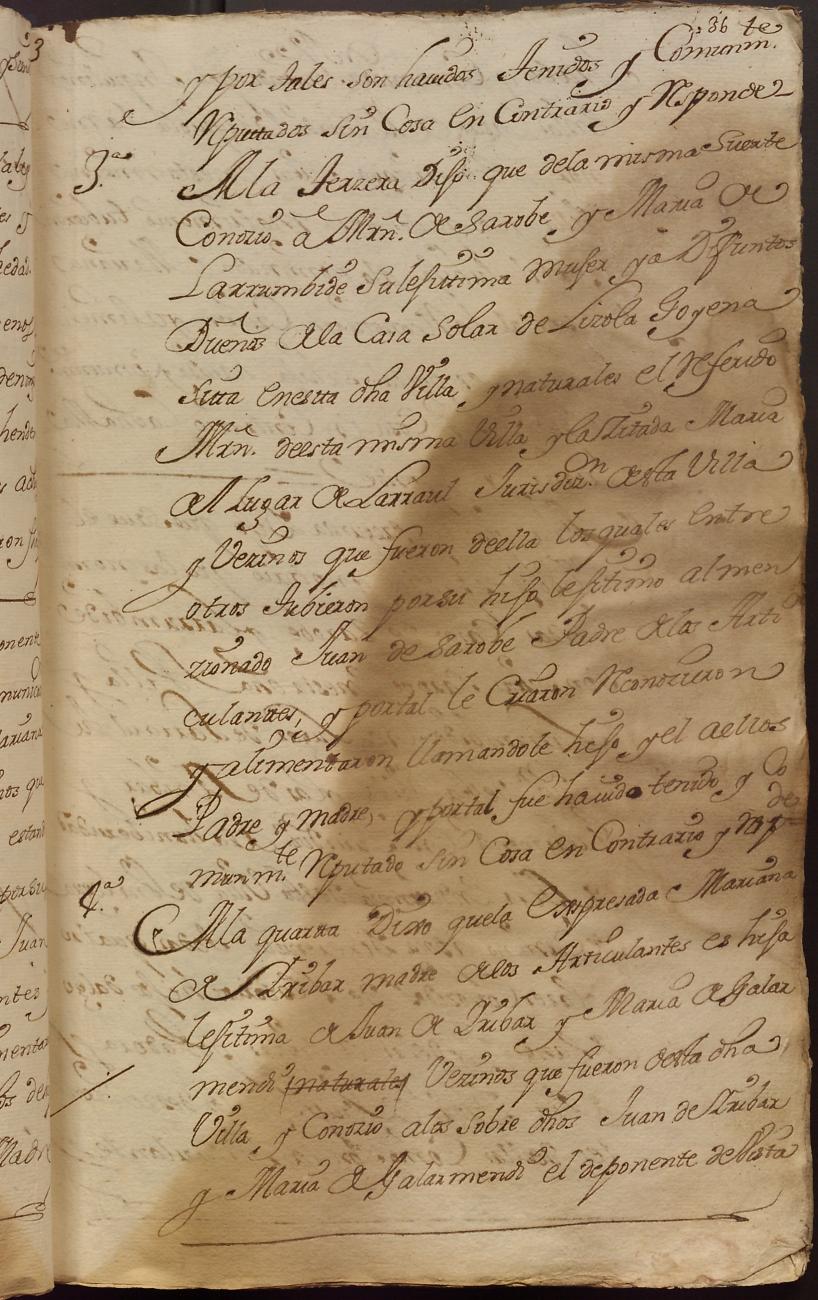 36
y por tales son hauidos tenidos y Comunm.te
Reputtados sin Cosa en Contrario y Responde
3.a A la terzera Dijo que dela misma suerte
Conozio a Mrn. de Sarobe y Maria de
Larrumbide su lejittima mujer ya Difuntos
Dueños de la Casa Solar de Lizola Goyena
sitta enesta dha Villa, y naturales el Referido
Mrn. deesta misma Villa y la Zitada Maria
del Lugar de Larraul Jurisdiz.n desta Villa
y Vezinos que fueron deella los quales entre
otros tubieron por su hijo lejitimo al men
zionado Juan de Sarobe Padre de los Arti
culantes, y portal le Criaron Reconozieron
y alimentaron llamandole hijo, y el aellos
Padre y madre, y portal fue hauido tenido y Co
munm.te Reputado sin Cosa en Contrario y resp.de
4.a A la quarta Dixo quela Expresada Mariana
de Yribar madre de los Articulantes es hija
lejitima de Juan de Yribar y Maria de Galar
mendi naturales Vezinos que fueron desta dha
Villa, y Conozio alos sobre dhos Juan de Yribar
y Maria de Galarmendi el deponente de Vista